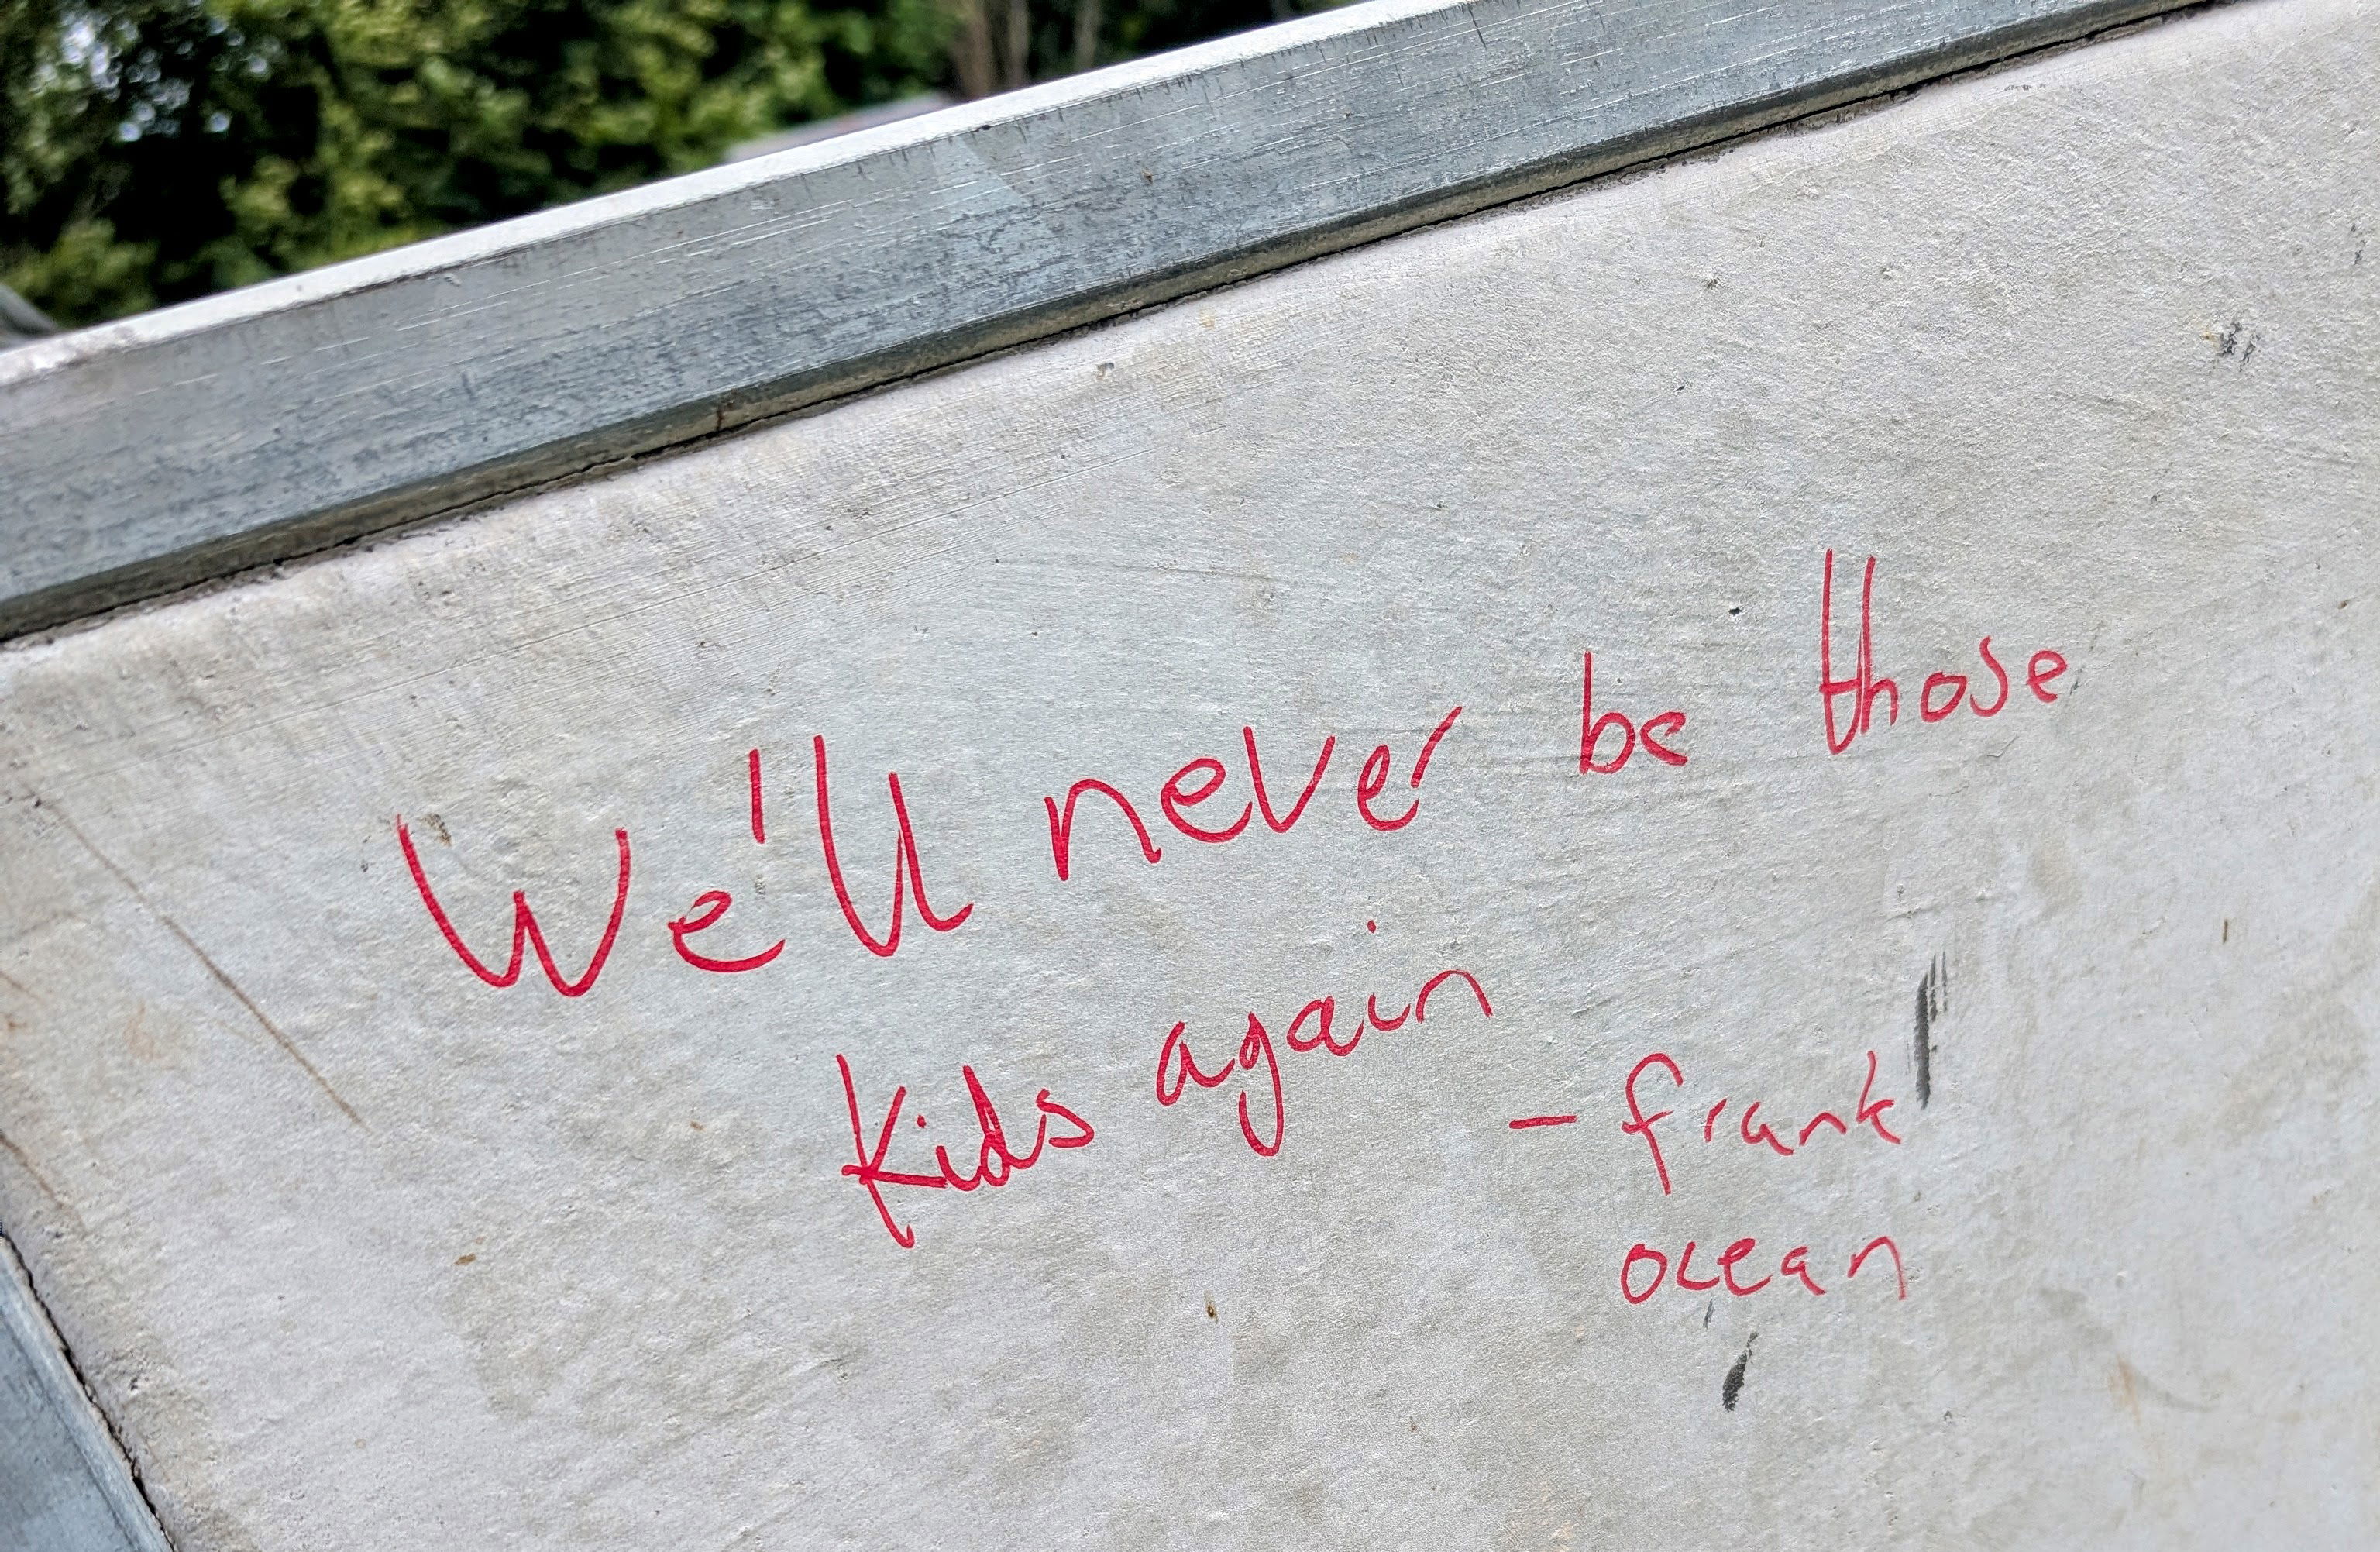 We'll never be those
kids again
- frank
ocean